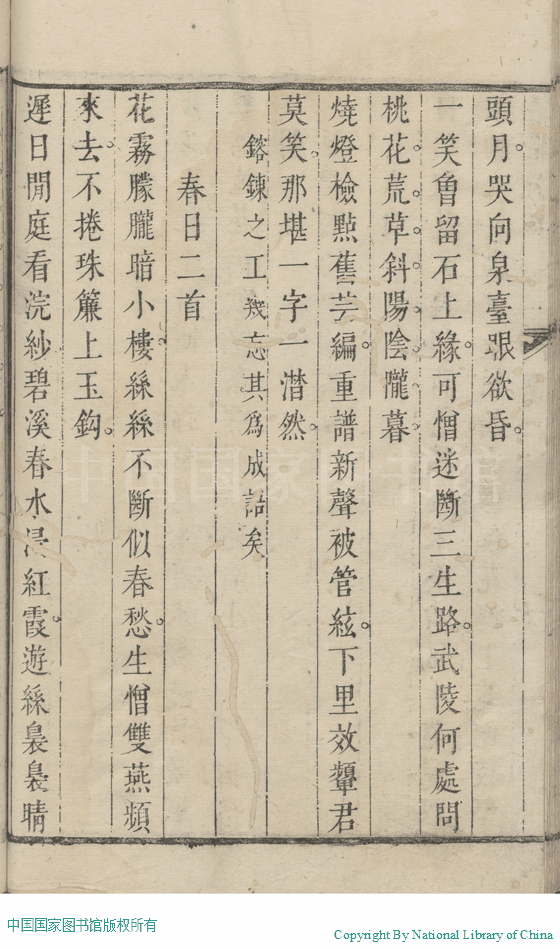 頭月。哭向泉臺眼欲昏。
一笑曾留石上緣。可憎迷斷三生路。武陵何處問
桃花。荒草。斜陽。陰隴。暮。
燒燈檢點舊芸編。重譜新聲被管絃。下里效顰君
莫笑。那堪一字一潸然。
鎔鍊之工幾忘其為成詁矣
春日二首
花霧朦朧暗小樓。絲絲不斷似春愁。生憎雙燕頻
來去。不捲珠簾上玉鈎。
遲日閒庭看浣紗碧溪春水浸紅霞。遊絲裊裊晴
中国国家图书馆版权所有
Copyright By National Library of China